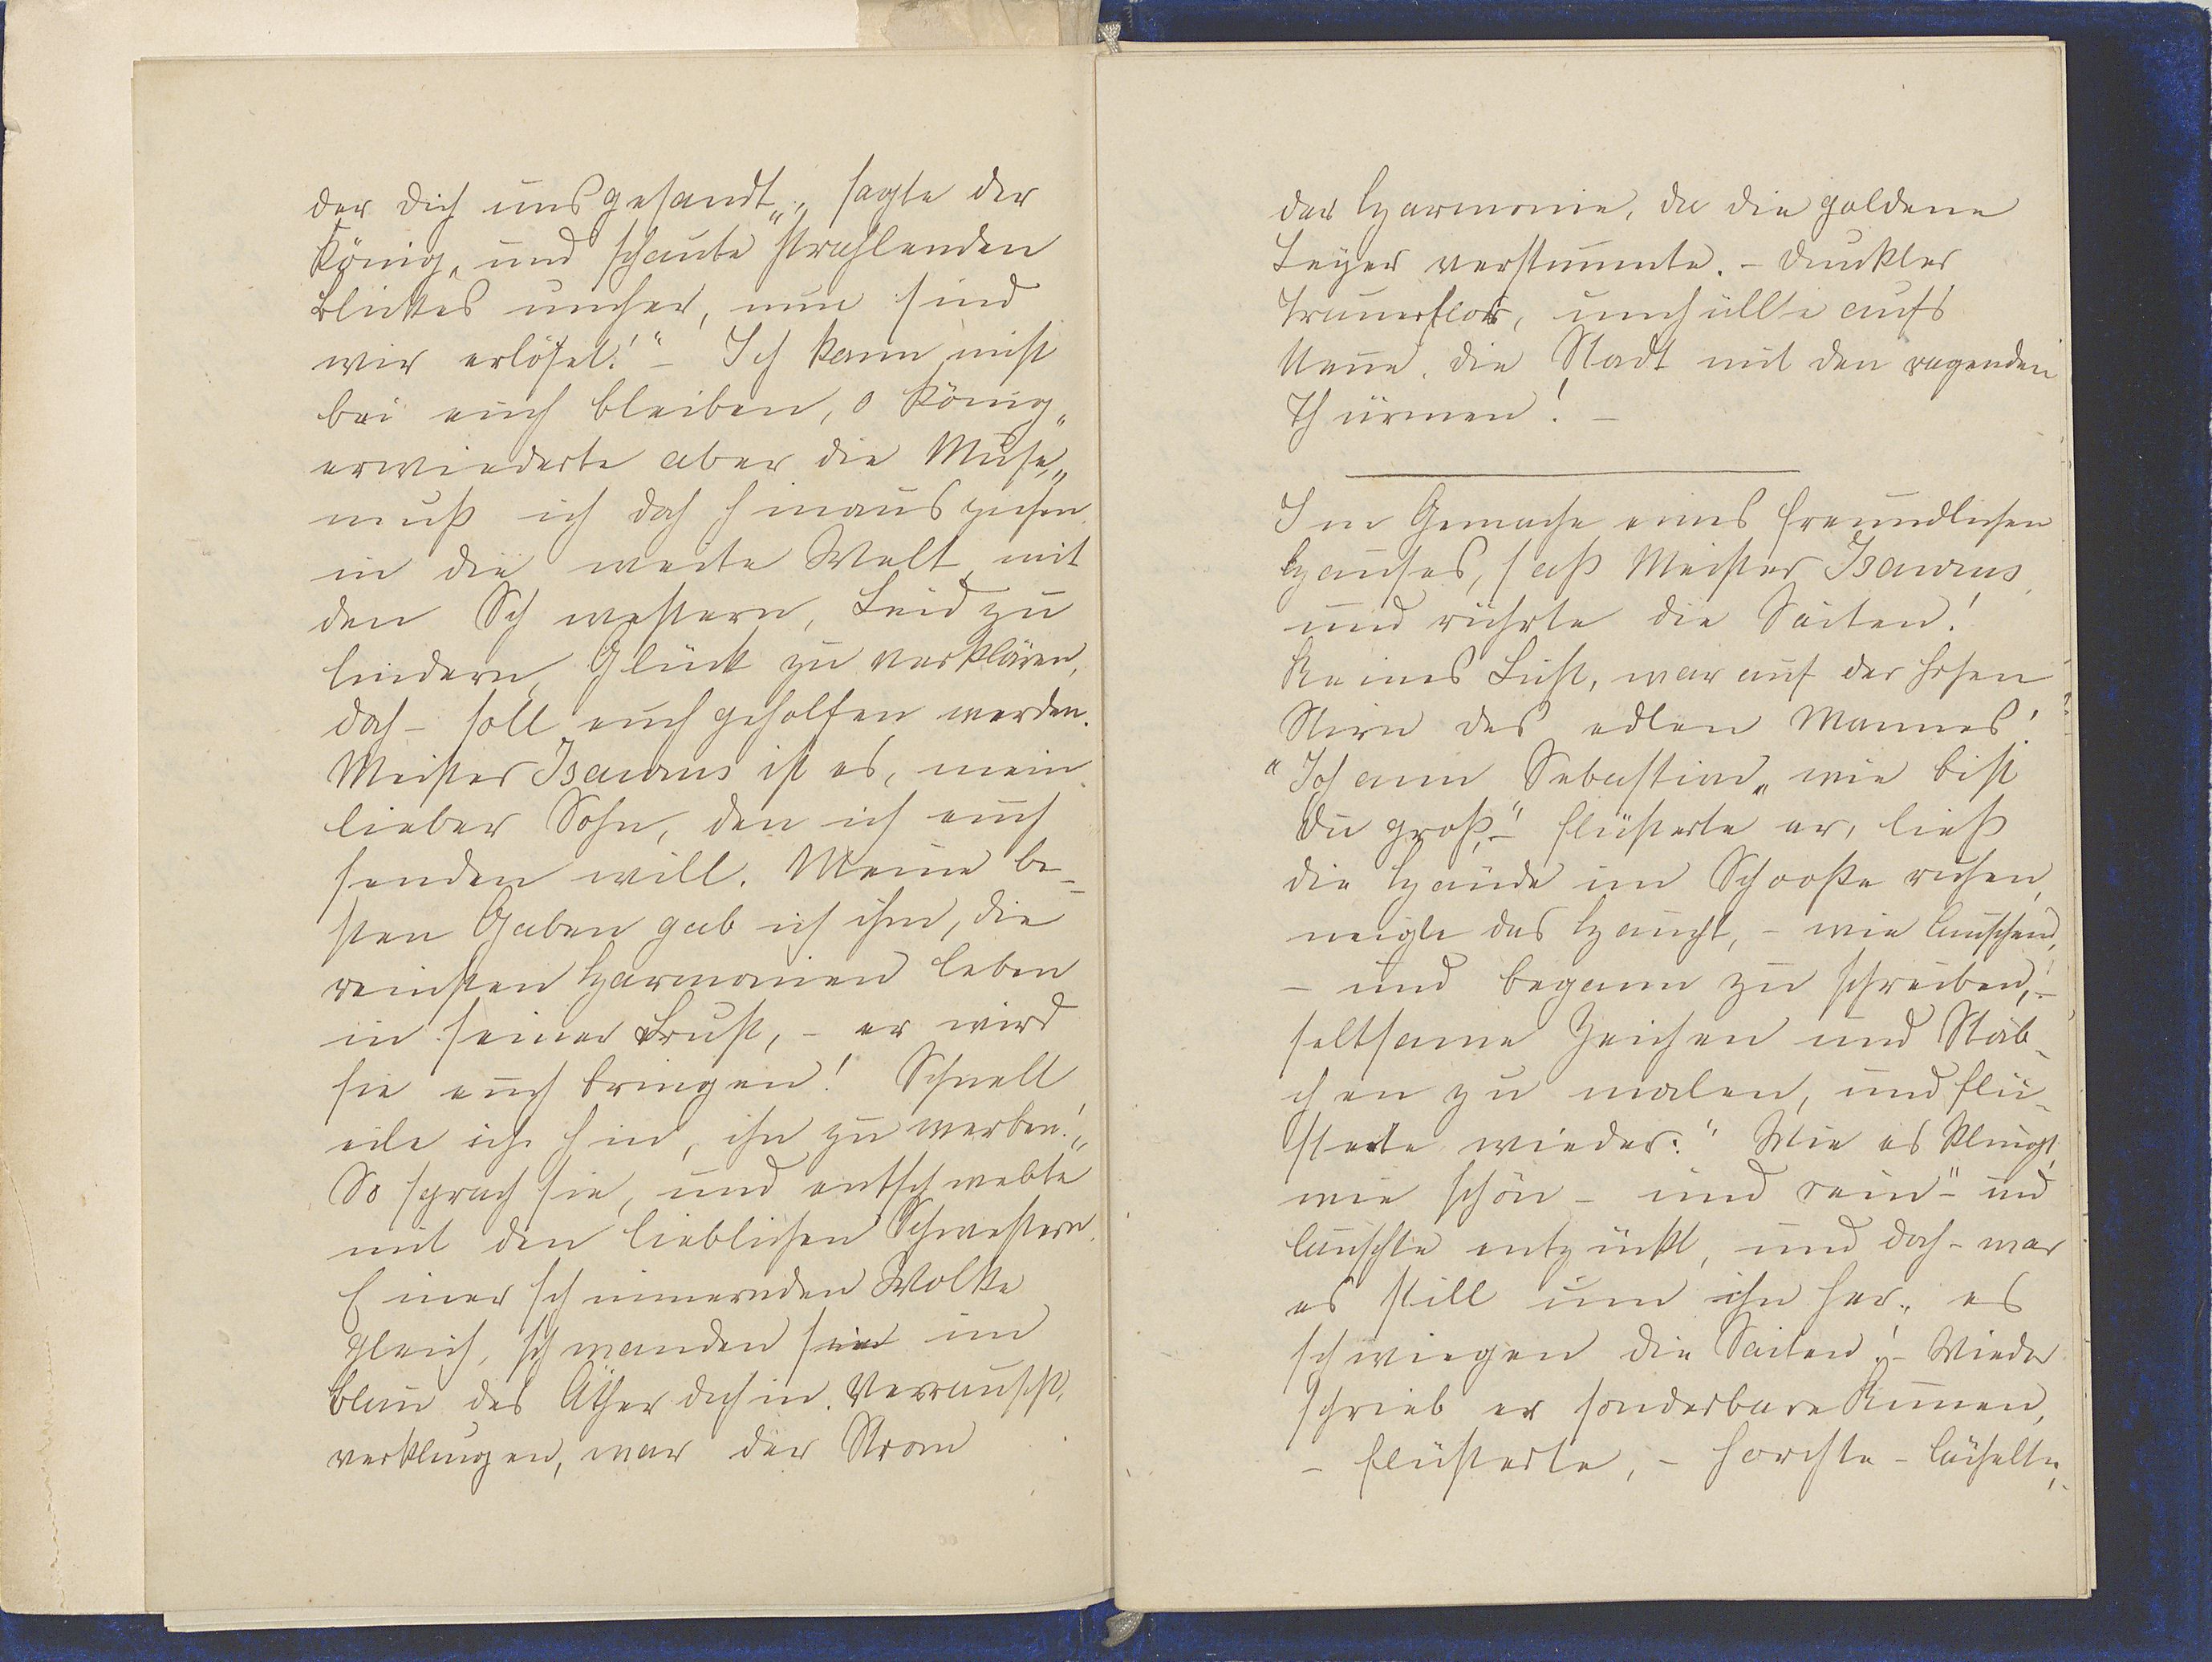 der dich uns gesandt„ „ sagte der
König „ und schaute strahlenden
Blickes umher, nun sind
wir erlöset!“ – Ich kann nicht
bei euch bleiben, o König„
erwiederte aber die Muse, „
muß ich doch hinausziehen
in die weite Welt mit
den Schwestern, Leid zu
lindern, Glück zu verklären,
doch – soll euch geholfen werden.
Meister Isawrus ist es, mein
lieber Sohn, den ich euch
senden will. Meine be-
sten Gaben gab ich ihm, die
reinsten Harmonien leben
in seiner Brust, – er wird
sie euch bringen! Schnell
eile ich hin, ihn zu werben!„
So sprach sie, und entschwebte
mit den lieblichen Schwestern.
Einer schimmernden Wolke
gleich, schwanden sie im
Blau des Äther dahin. Verrauscht,
verklungen, war der Strom
der Harmonie, da die goldene
Leyer verstummte. – Dunkler
Trauerflor, umhüllte aufs
Neue, die Stadt mit den ragenden
Thürmen! –
Im Gemache eines freundlichen
Hauses, saß Meister Isawrus,
und rührte die Saiten!
Reines Licht, war auf der hohen
Stirn des edlen Mannes!
“Johann Sebastian„ wie bist
Du groß,–“ flüsterte er, ließ
die Hände im Schooße ruhen,
neigte das Haupt, – wie lauschend,
– und begann zu schreiben, –
seltsame Zeichen und Stäb-
chen zu malen, und flü-
sterte wieder: “ Wie es klingt,
wie schön – und rein –“ und
lauschte entzückt, und doch – war
es still um ihn her, es
schwiegen die Saiten! – Wieder
schrieb er sonderbare Runen,
– flüsterte, – horchte – lächelte, –